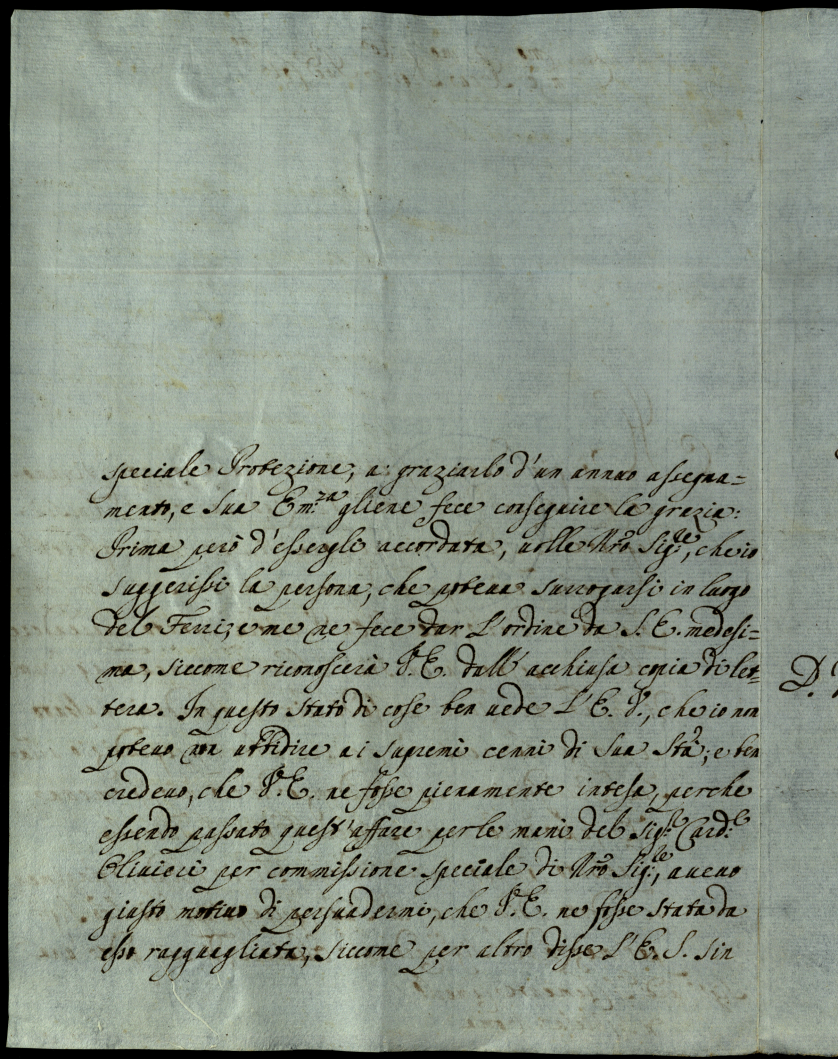 speciale Protezione, a graziarlo d'un annuo assegna=
mento, e Sua Em.za gliene fece conseguire la grazia:
Prima però d'essergli accordata, volle Nrõ Sig.re, che io
suggerissi la persona, che poteva surrogarsi in luogo
del Ferri; e me ne fece dar l'ordine da S. E. medesi=
ma, siccome riconoscerà V. E. dall'acchiusa copia di let=
tera. In questo stato di cose ben vede l'E. V., che io non
potevo non ubbidire ai supremi cenni di Sua Stà; e ben
credevo, che V. E. ne fosse pienamente intesa, perche
essendo passato quest'affare per le mani del Sig.r Card.e
Olivieri per commissione speciale di Nrõ Sig.re, avevo
giusto motivo di persuadermi, che V. E. ne fosse stata da
esso ragguagliata, siccome per altro disse l'E. S. sin
D.